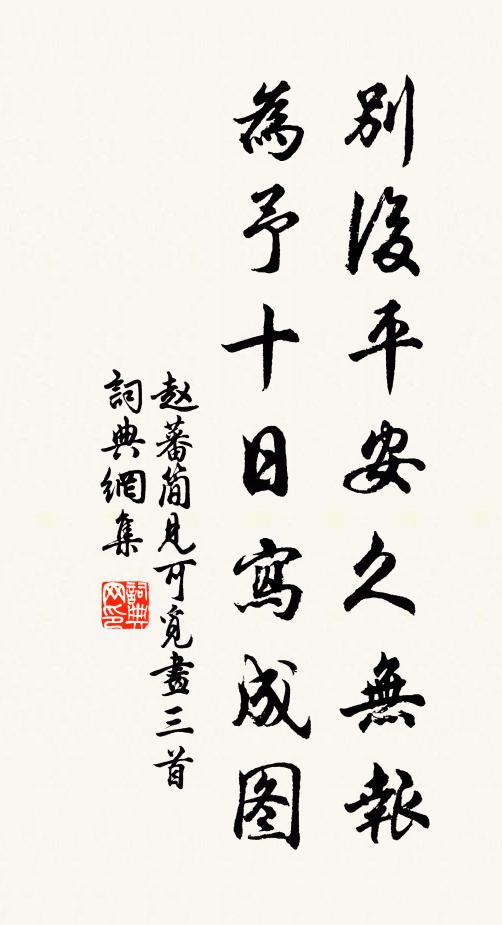 別後平安久無報
為予十日寫成图
赵蕃简見可覓畫三首
詞典網集
詞典网印